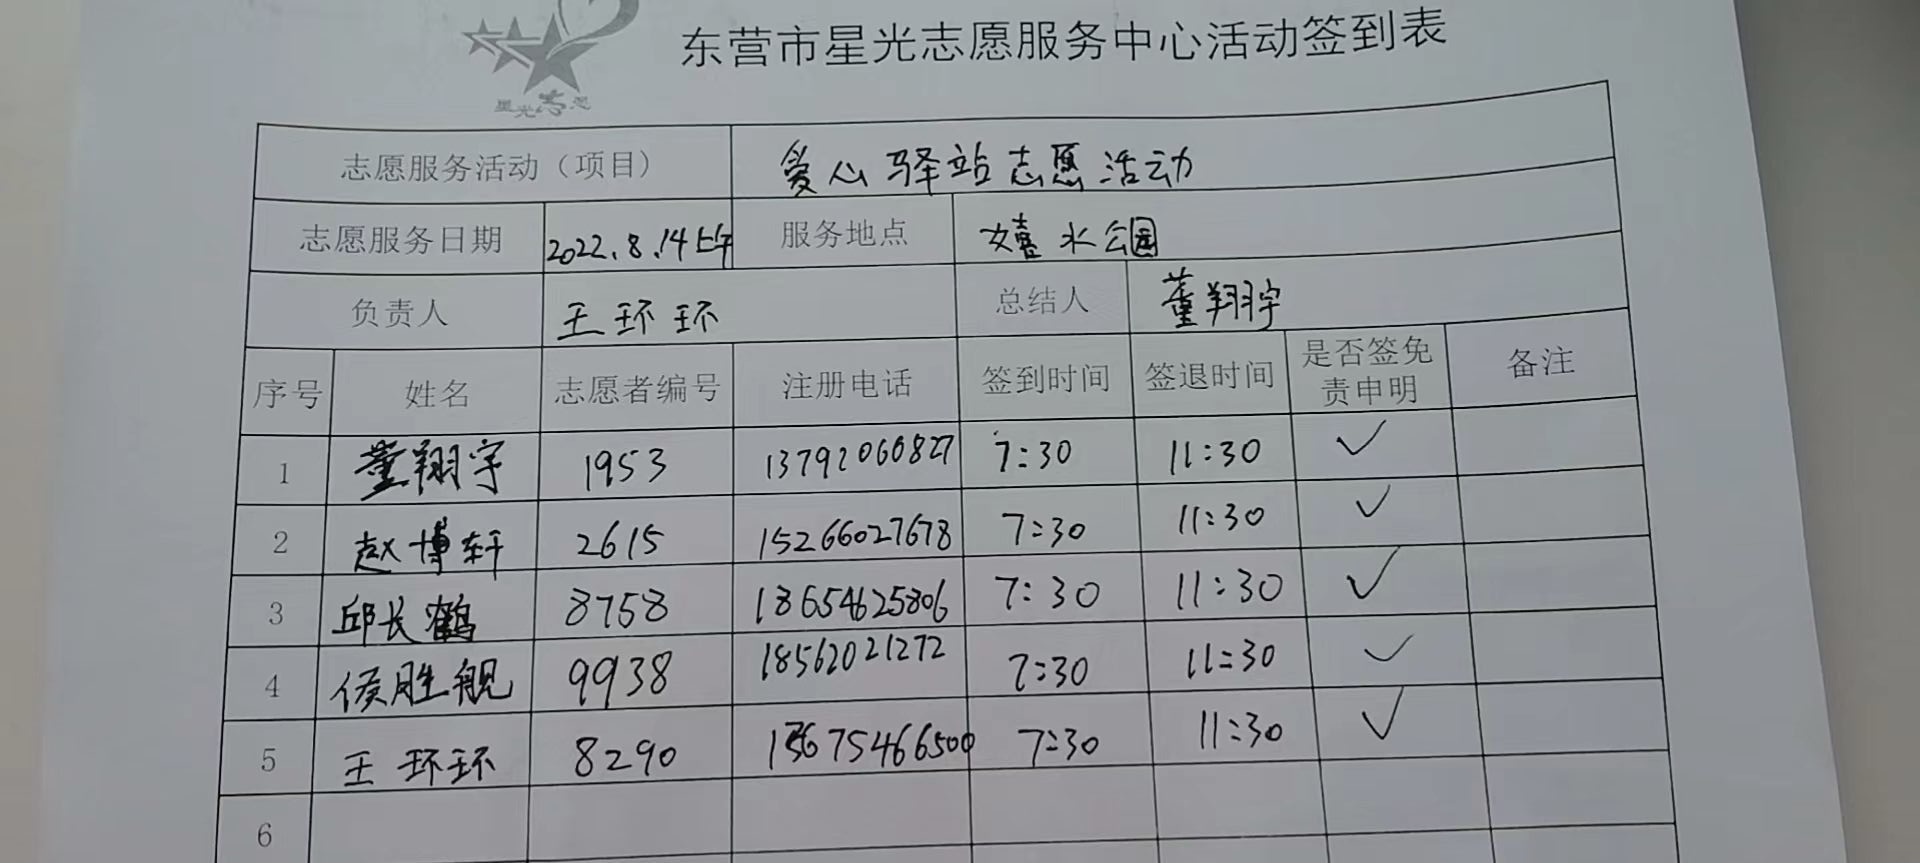 东营市星光志愿服务中心活动签到表
星光志愿
志愿服务活动（项目） 爱心驿站志愿活动
志愿服务日期 2022.8.14上午 服务地点 嬉水公园
负责人 王环环 总结人 董翔宇
序号 姓名 志愿者编号 注册电话 签到时间 签退时间 是否签免责申明 备注
1 董翔宇 1953 13792060827 7:30 11:30 ✓
2 赵博轩 2615 15266027678 7:30 11:30 ✓
3 邱长鹤 8758 18654625806 7:30 11:30 ✓
4 侯胜舰 9938 18562021272 7:30 11:30 ✓
5 王环环 8290 7:30 11:30 ✓
6